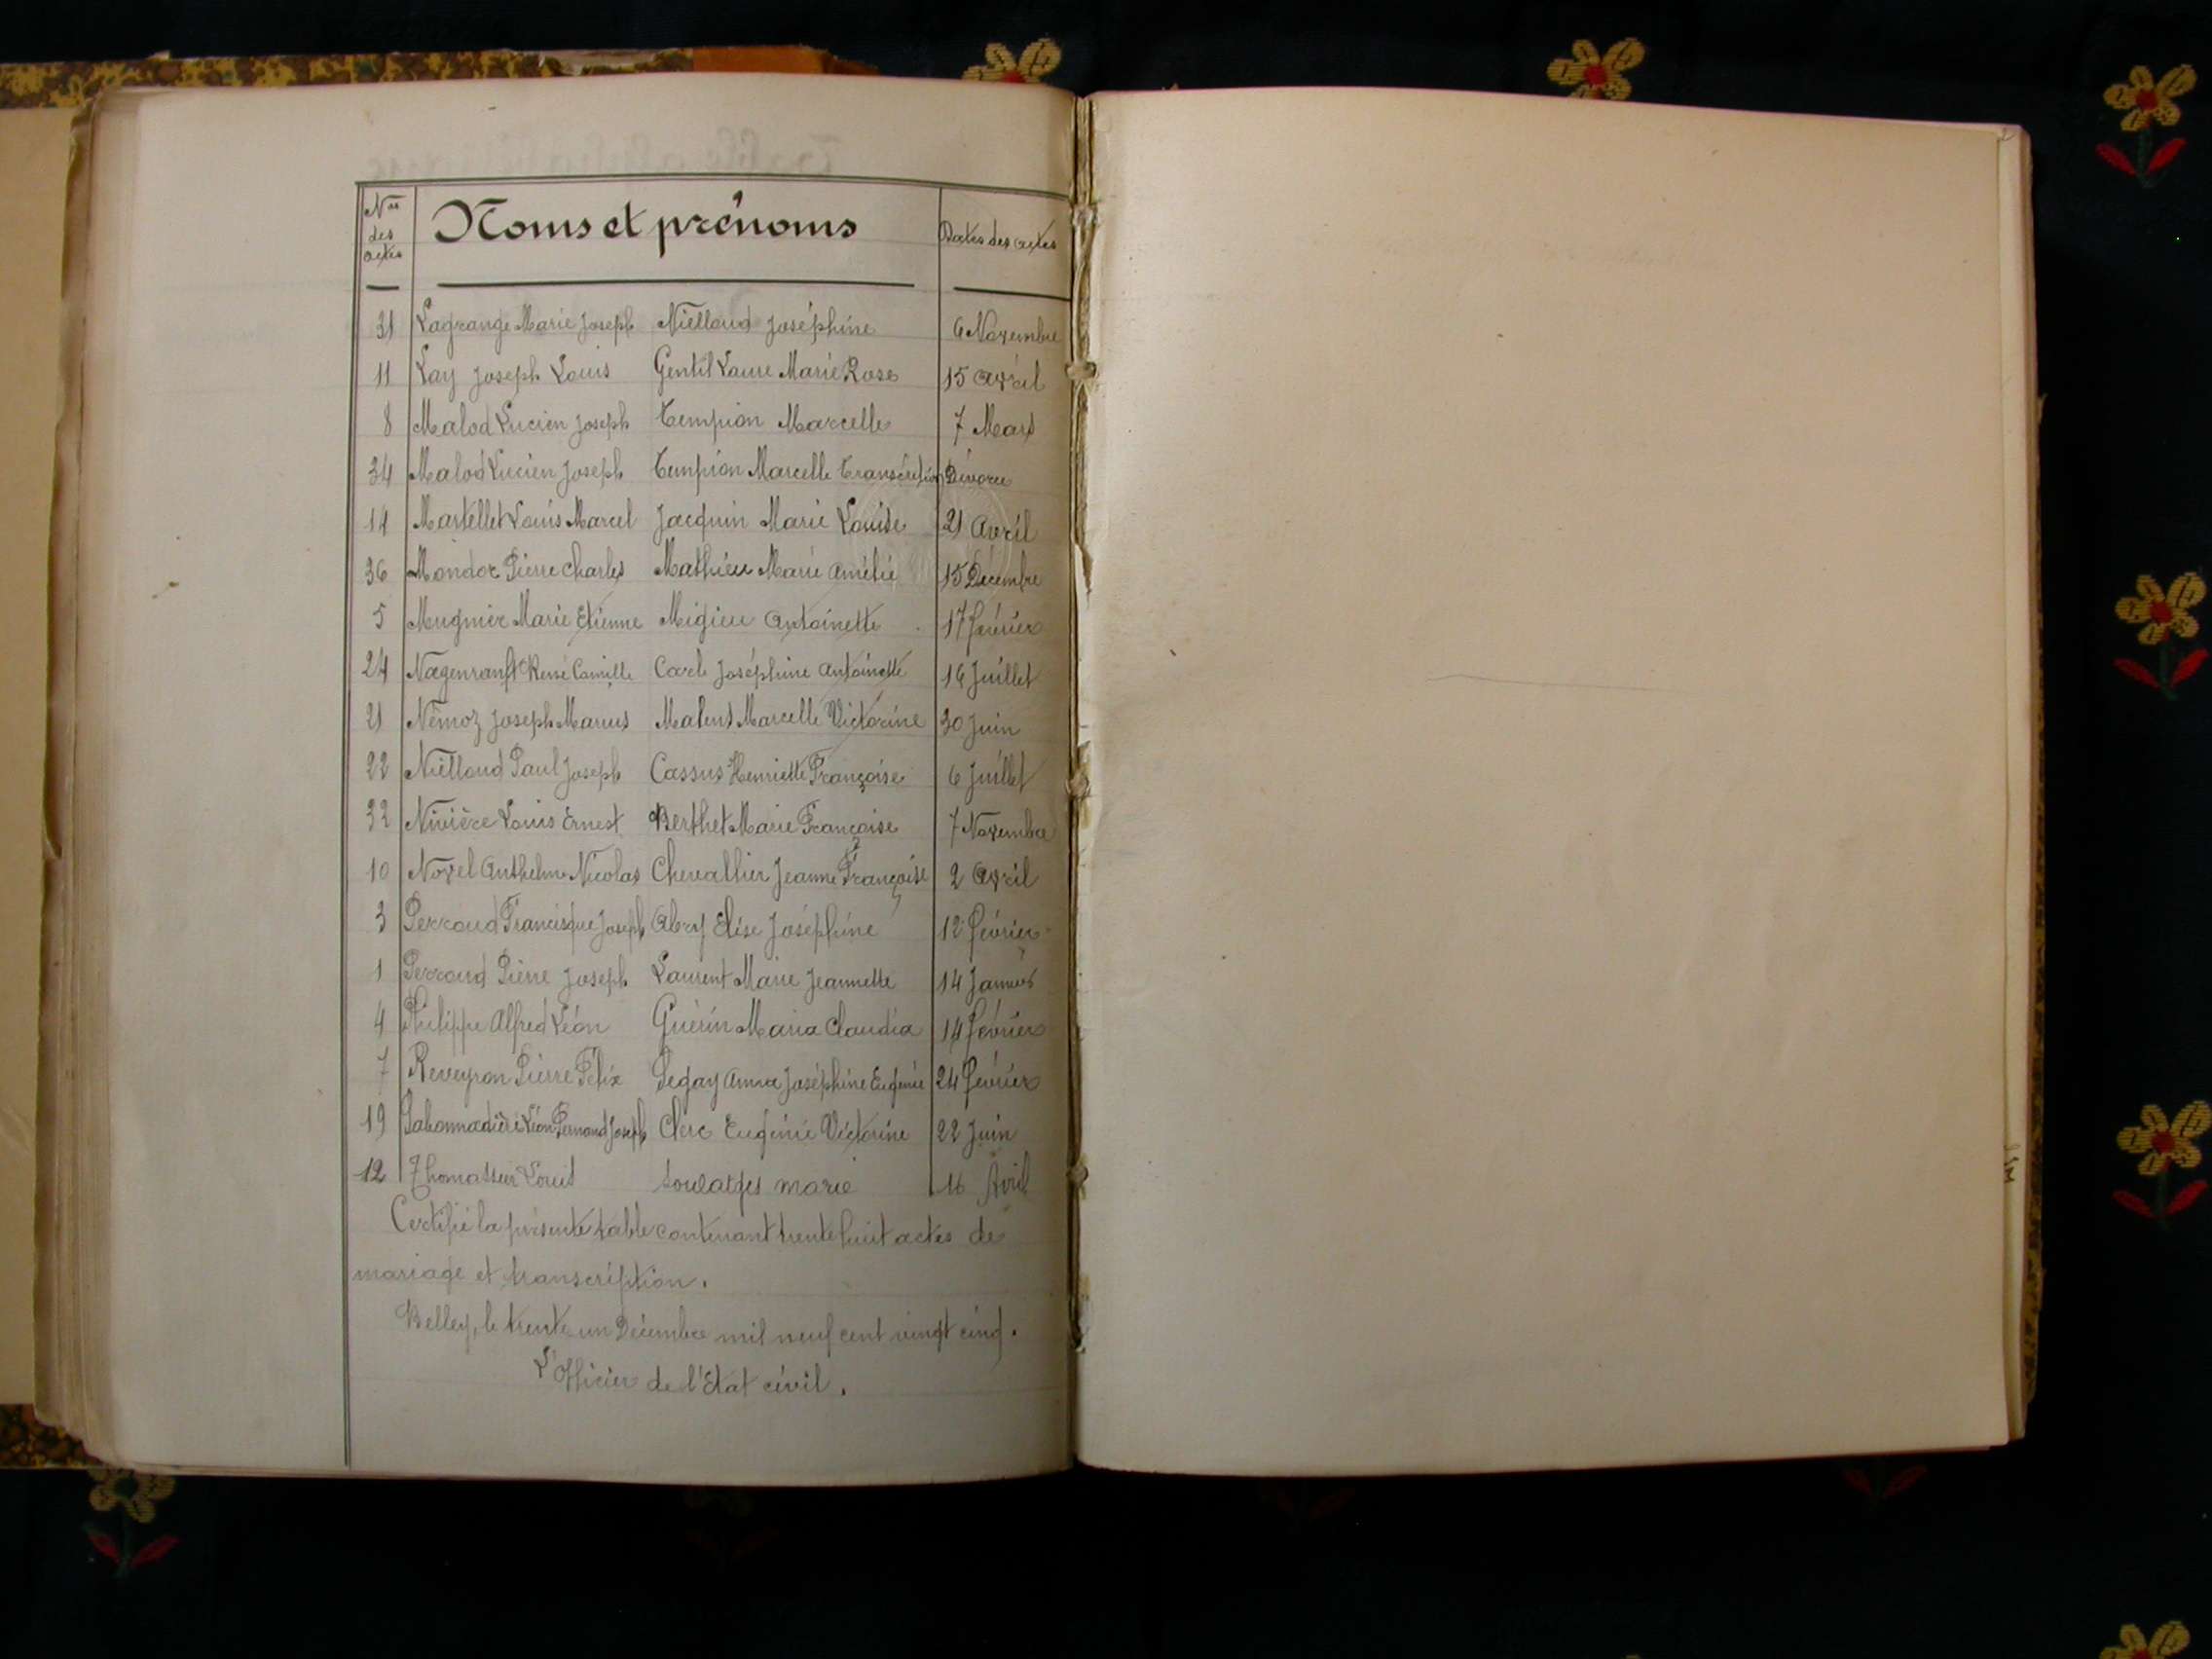 Nos des actes Noms et prénoms Dates des actes
31 Lagrange Marie Joseph Niélloud Joséphine 6 Novembre
11 Lay Joseph Louis Gentil Laure Marie Rose 15 Avril
8 Malod Lucien Joseph Tempion Marcelle 7 Mars
34 Malod Lucien Joseph Tempion Marcelle Transcription Divorce
14 Martellet Louis Marcel Jacquin Marie Louise 21 Avril
36 Mondor Pierre Charles Mathieu Marie Amélie 15 Décembre
5 Mugnier Marie Etienne Migieu Antoinette 17 février
24 Nagenranft René Camille Carle Joséphine Antoinette 16 Juillet
21 Némoz Joseph Marius Marcelle Victorine 30 Juin
22 Niélloud Paul Joseph Cassus Henriette Françoise 6 Juillet
32 Nivière Louis Ernest Berthet Marie Françoise 7 Novembre
10 Novel Anthelme Nicolas Chevallier Jeanne Françoise 2 Avril
3 Perroud Francisque Joseph Abry Elise Joséphine 12 février
1 Perroud Pierre Joseph Laurent Marie Jeannette 14 Janvier
4 Philippe Alfred Léon Guérin Maria Claudia 14 février
7 Reveyron Pierre Félix Segay Anna Joséphine Eugénie 24 février
19 Sabonnadière Léon Fernand Joseph Clerc Eugénie Victorine 22 Juin
12 Thomasset Louis Soulatges marie 16 Avril
Certifié la présente table contenant trente huit actes de
mariage et transcription.
Belley, le trente un Décembre mil neuf cent vingt cinq.
L'Officier de l'Etat civil.